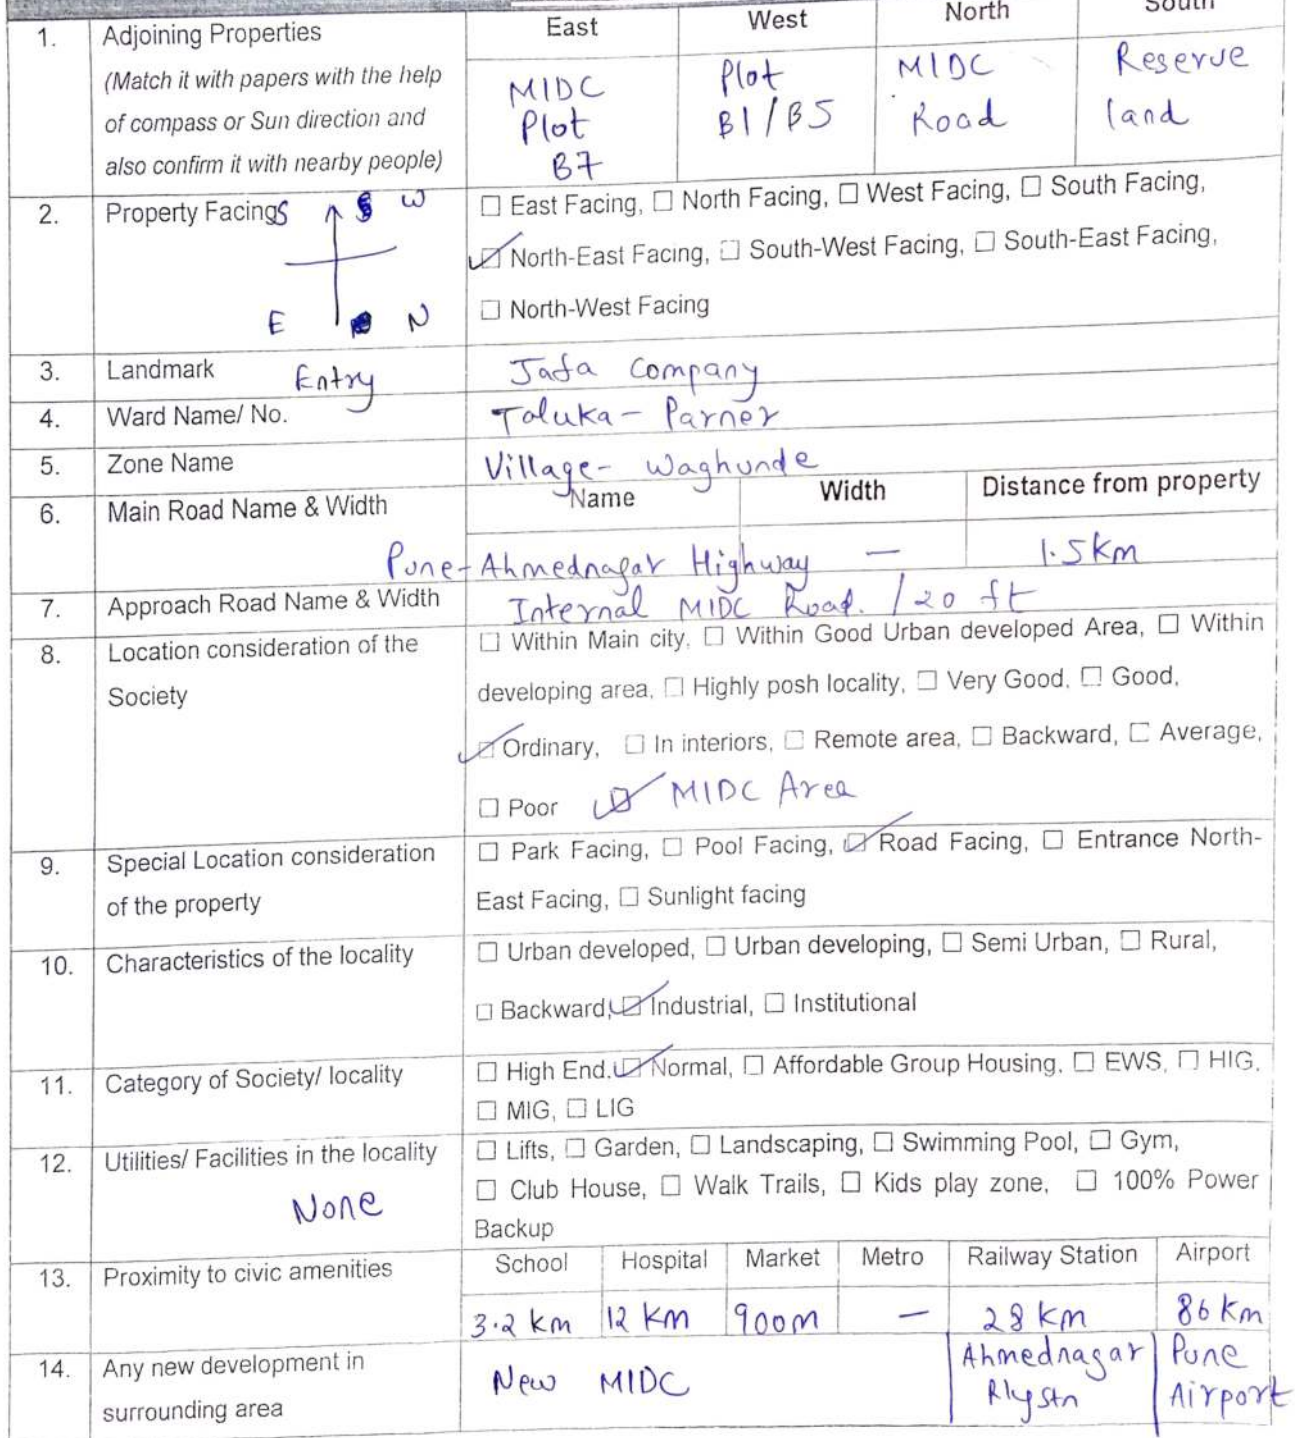 East West North South
1. Adjoining Properties
(Match it with papers with the help
of compass or Sun direction and
also confirm it with nearby people)
MIDC
Plot
B7
Plot
B1/B5
MIDC
Road
Reserve
land
2. Property Facing
S W
E N
Entry
☐ East Facing, ☐ North Facing, ☐ West Facing, ☐ South Facing,
☑ North-East Facing, ☐ South-West Facing, ☐ South-East Facing,
☐ North-West Facing
3. Landmark Jafa Company
4. Ward Name/ No. Taluka- Parner
5. Zone Name Village- Waghunde
6. Main Road Name & Width
Name Width Distance from property
Pune-Ahmednagar Highway — 1.5km
7. Approach Road Name & Width Internal MIDC Road. /20 ft
8. Location consideration of the
Society
☐ Within Main city, ☐ Within Good Urban developed Area, ☐ Within
developing area, ☐ Highly posh locality, ☐ Very Good, ☐ Good,
☑ Ordinary, ☐ In interiors, ☐ Remote area, ☐ Backward, ☐ Average,
☐ Poor ☑ MIDC Area
9. Special Location consideration
of the property
☐ Park Facing, ☐ Pool Facing, ☑ Road Facing, ☐ Entrance North-
East Facing, ☐ Sunlight facing
10. Characteristics of the locality
☐ Urban developed, ☐ Urban developing, ☐ Semi Urban, ☐ Rural,
☐ Backward, ☑ Industrial, ☐ Institutional
11. Category of Society/ locality
☐ High End, ☑ Normal, ☐ Affordable Group Housing, ☐ EWS, ☐ HIG,
☐ MIG, ☐ LIG
12. Utilities/ Facilities in the locality
None
☐ Lifts, ☐ Garden, ☐ Landscaping, ☐ Swimming Pool, ☐ Gym,
☐ Club House, ☐ Walk Trails, ☐ Kids play zone, ☐ 100% Power
Backup
13. Proximity to civic amenities
School Hospital Market Metro Railway Station Airport
3.2 km 12 km 900m — 28 km 86 km
Ahmednagar
Rly Stn
Pune
Airport
14. Any new development in
surrounding area
New MIDC